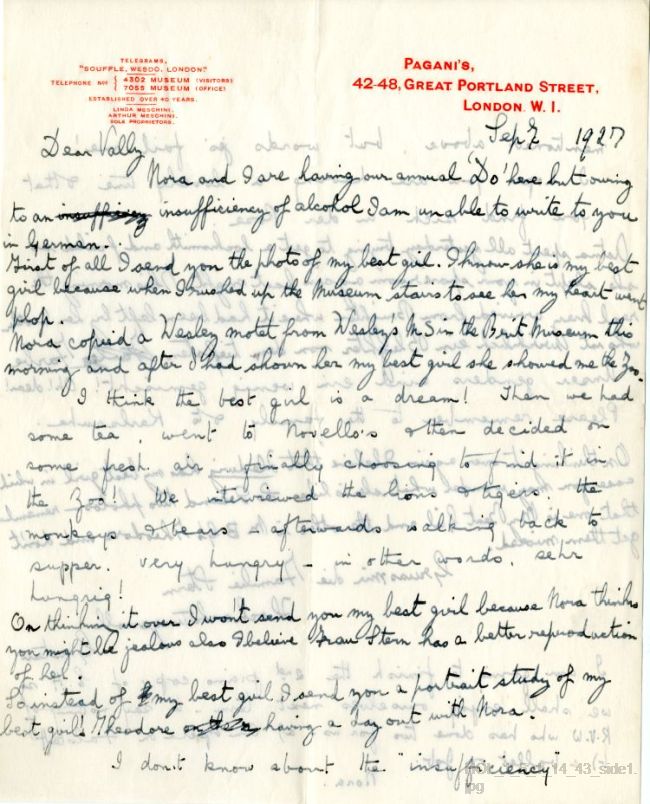 TELEGRAMS,
"SOUFFLE, WESDO, LONDON."
TELEPHONE NOS { 4302 MUSEUM (VISITORS)
7055 MUSEUM (OFFICE)
ESTABLISHED OVER 40 YEARS.
LINDA MESCHINI,
ARTHUR MESCHINI,
SOLE PROPRIETORS.
PAGANI'S,
42-48, GREAT PORTLAND STREET,
LONDON. W. I.
Sep 1927
Dear Vally
Nora and I are having our annual 'Do' here but owing
to an insufficiency of alcohol I am unable to write to you
in German.
First of all I send you the photo of my best girl. I know she is my best
girl because when I rushed up the Museum stairs to see her my heart went
plop.
Nora copied a Wesley motet from Wesley's MS in the Brit Museum this
morning and after I had shown her my best girl she showed me the Zoo.
I think the best girl is a dream! Then we had
some tea, went to Novello's & then decided on
some fresh air – finally choosing to find it in
the Zoo! We interviewed the lions & tigers, the
monkeys & bears – afterwards walking back to
supper, very hungry – in other words, sehr
hungrig!
On thinkin it over I won't send you my best girl because Nora thinks
you might be jealous also I believe Frau Stern has a better reproduction
of her.
So instead of my best girl I send you a portrait study of my
best girl! Theodore having a day out with Nora.
I don't know about the "insufficiency"